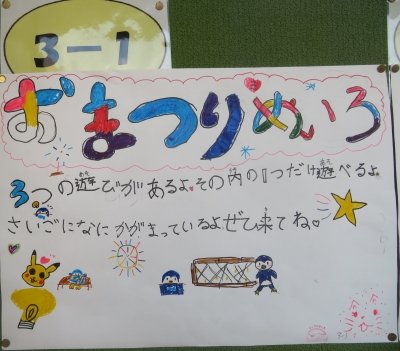 3-1
おまつりめいろ
3つの遊びがあるよ。その内の1つだけ遊べるよ
さいごになにかがまっているよぜひ来てね。